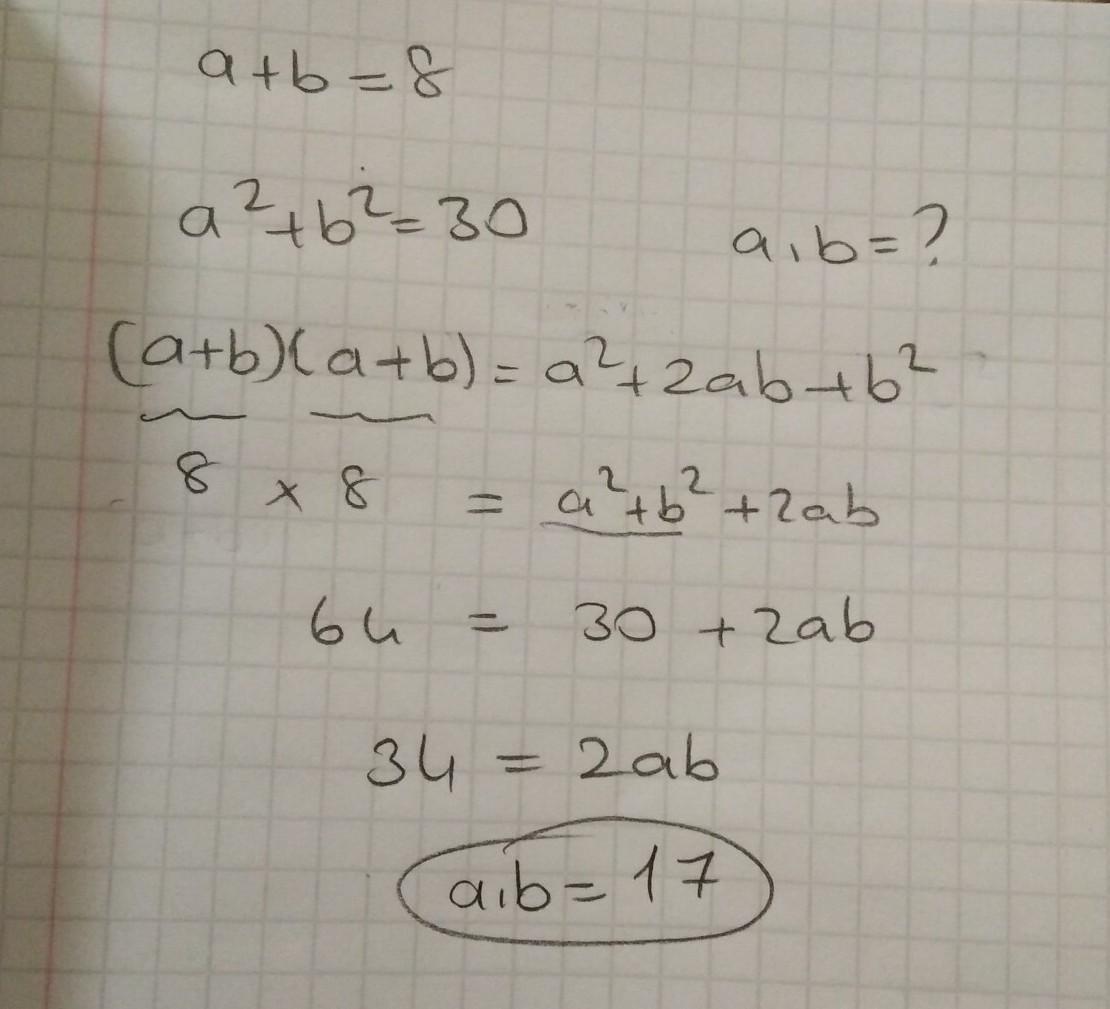 a+b=8
a²+b²=30 a.b=?
(a+b)(a+b)=a²+2ab+b²
8 x 8 = a²+b²+2ab
64 = 30+2ab
34 = 2ab
a.b=17